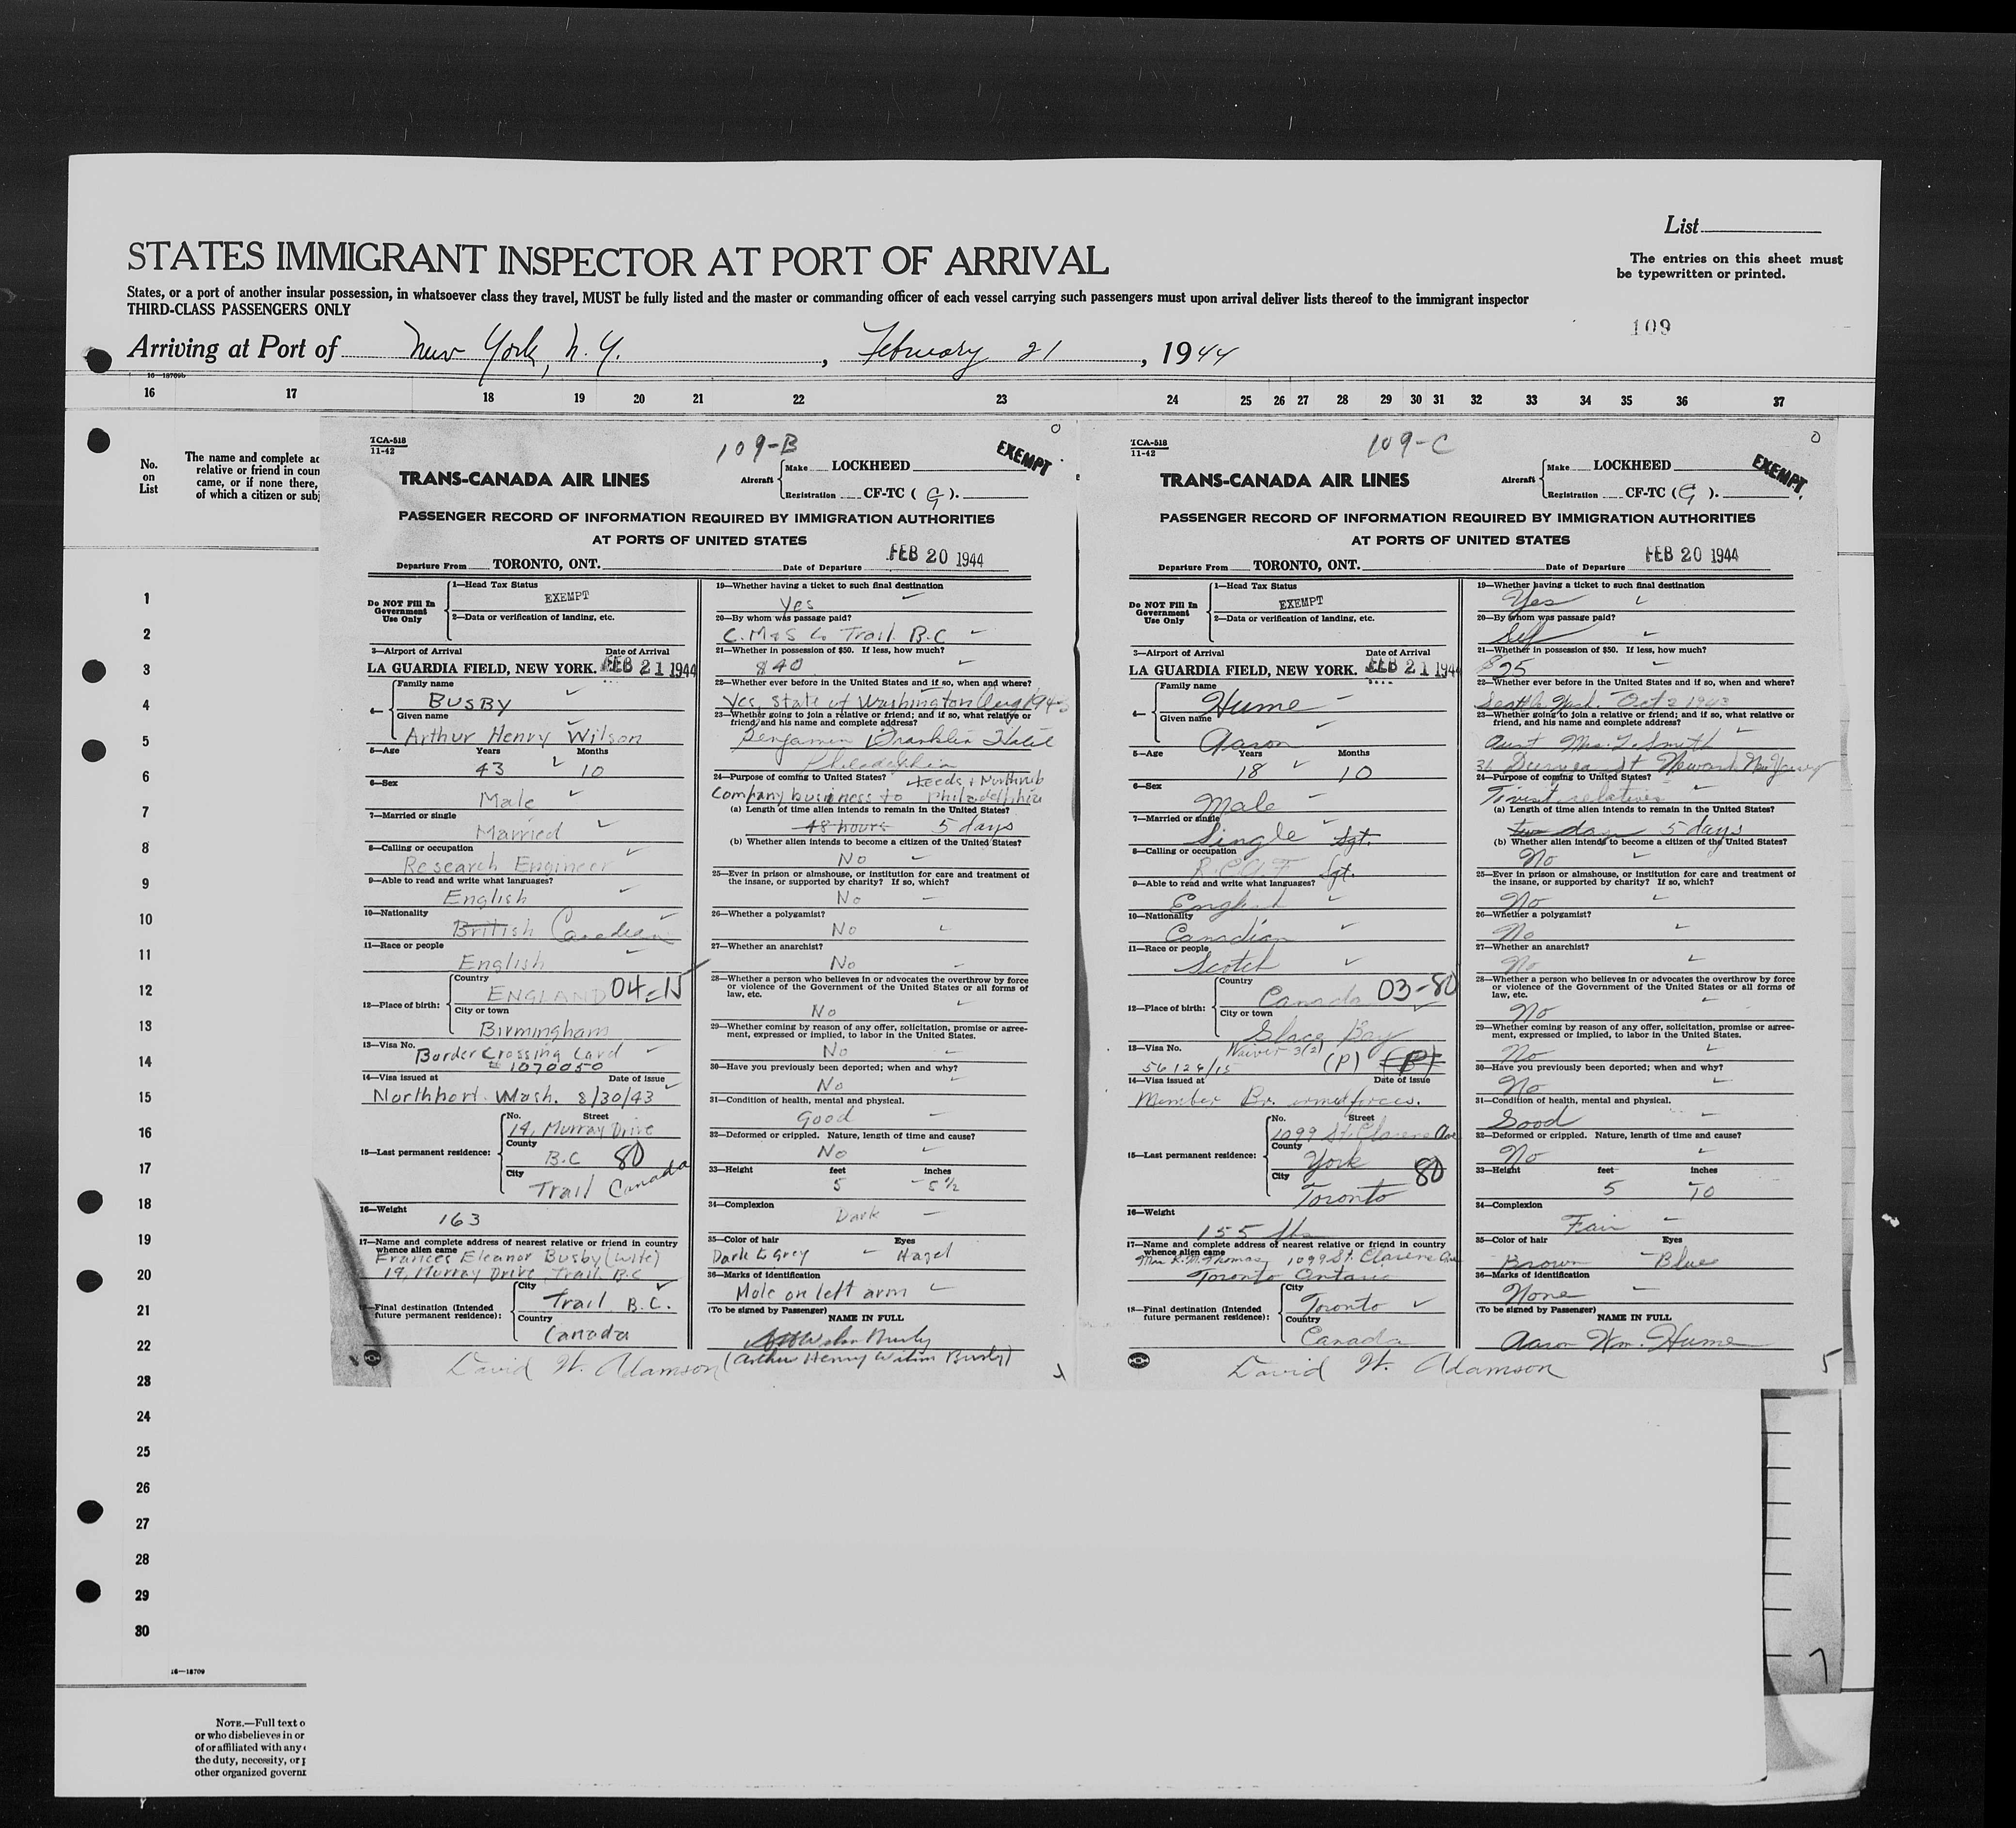 List
STATES IMMIGRANT INSPECTOR AT PORT OF ARRIVAL
The entries on this sheet must
be typewritten or printed.
States, or a port of another insular possession, in whatsoever class they travel, MUST be fully listed and the master or commanding officer of each vessel carrying such passengers must upon arrival deliver lists thereof to the immigrant inspector
THIRD-CLASS PASSENGERS ONLY
109
Arriving at Port of New York, N.Y. , February 21 , 1944
16—18709b
16 17 18 19 20 21 22 23 24 25 26 27 28 29 30 31 32 33 34 35 36 37
No.
on
List
The name and complete ad
relative or friend in coun
came, or if none there,
of which a citizen or subj
TCA-518
11-42
109-B
EXEMPT
TRANS-CANADA AIR LINES
Aircraft
Make LOCKHEED
Registration CF-TC ( G ).
PASSENGER RECORD OF INFORMATION REQUIRED BY IMMIGRATION AUTHORITIES
AT PORTS OF UNITED STATES
Departure From TORONTO, ONT. Date of Departure FEB 20 1944
Do NOT Fill In
Government
Use Only
1—Head Tax Status
EXEMPT
2—Data or verification of landing, etc.
3—Airport of Arrival Date of Arrival
LA GUARDIA FIELD, NEW YORK. FEB 21 1944
4—
Family name
BUSBY
Given name
Arthur Henry Wilson
5—Age Years Months
43 10
6—Sex
Male
7—Married or single
Married
8—Calling or occupation
Research Engineer
9—Able to read and write what languages?
English
10—Nationality
British Canadian
11—Race or people
English
12—Place of birth:
Country
ENGLAND 04-15
City or town
Birmingham
13—Visa No.
Border Crossing Card
# 1070050
14—Visa issued at Date of issue
Northport Wash. 8/30/43
15—Last permanent residence:
No. Street
19, Murray Drive
County
B.C 80
City
Trail Canada
16—Weight
163
17—Name and complete address of nearest relative or friend in country
whence alien came
Frances Eleanor Busby (wife)
19, Murray Drive, Trail B.C
Final destination (Intended
future permanent residence):
City
Trail B.C.
Country
Canada
19—Whether having a ticket to such final destination
Yes
20—By whom was passage paid?
C.M&S Co Trail B.C
21—Whether in possession of $50. If less, how much?
$40
22—Whether ever before in the United States and if so, when and where?
Yes, State of Washington Aug 1943
23—Whether going to join a relative or friend; and if so, what relative or
friend, and his name and complete address?
Benjamin Franklin Hotel
Philadelphia
24—Purpose of coming to United States? Leeds & Northrub
Company business to Philadelphia
(a) Length of time alien intends to remain in the United States?
48 hours 5 days
(b) Whether alien intends to become a citizen of the United States?
No
25—Ever in prison or almshouse, or institution for care and treatment of
the insane, or supported by charity? If so, which?
No
26—Whether a polygamist?
No
27—Whether an anarchist?
No
28—Whether a person who believes in or advocates the overthrow by force
or violence of the Government of the United States or all forms of
law, etc.
No
29—Whether coming by reason of any offer, solicitation, promise or agree-
ment, expressed or implied, to labor in the United States.
No
30—Have you previously been deported; when and why?
No
31—Condition of health, mental and physical.
Good
32—Deformed or crippled. Nature, length of time and cause?
No
33—Height feet inches
5 5½
34—Complexion
Dark
35—Color of hair Eyes
Dark to Grey Hazel
36—Marks of identification
Mole on left arm
(To be signed by Passenger)
NAME IN FULL
(Arthur Henry Wilson Busby)
David W. Adamson
TCA-518
11-42
109-C
EXEMPT
TRANS-CANADA AIR LINES
Aircraft
Make LOCKHEED
Registration CF-TC ( G ).
PASSENGER RECORD OF INFORMATION REQUIRED BY IMMIGRATION AUTHORITIES
AT PORTS OF UNITED STATES
Departure From TORONTO, ONT. Date of Departure FEB 20 1944
Do NOT Fill In
Government
Use Only
1—Head Tax Status
EXEMPT
2—Data or verification of landing, etc.
3—Airport of Arrival Date of Arrival
LA GUARDIA FIELD, NEW YORK. FEB 21 1944
4—
Family name
Hume
Given name
Aaron
5—Age Years Months
18 10
6—Sex
Male
7—Married or single
Single Sgt.
8—Calling or occupation
R.C.A.F Sgt.
9—Able to read and write what languages?
English
10—Nationality
Canadian
11—Race or people
Scotch
12—Place of birth:
Country
Canada 03-80
City or town
Glace Bay
13—Visa No. Waiver 3(2)
56124/15 (P)
14—Visa issued at Date of issue
Member Br. armed forces.
15—Last permanent residence:
No. Street
1099 St. Clarens Ave
County
York 80
City
Toronto
16—Weight
155 lbs
17—Name and complete address of nearest relative or friend in country
whence alien came
Mrs R.M. Thomas, 1099 St. Clarens Ave
Toronto Ontario
18—Final destination (Intended
future permanent residence):
City
Toronto
Country
Canada
19—Whether having a ticket to such final destination
Yes
20—By whom was passage paid?
Self
21—Whether in possession of $50. If less, how much?
$25
22—Whether ever before in the United States and if so, when and where?
Seattle Wash. Oct 2 1943
23—Whether going to join a relative or friend; and if so, what relative or
friend, and his name and complete address?
Aunt Mrs. L. Smith
36 St Newark New Jersey
24—Purpose of coming to United States?
To visit relatives
(a) Length of time alien intends to remain in the United States?
two days 5 days
(b) Whether alien intends to become a citizen of the United States?
No
25—Ever in prison or almshouse, or institution for care and treatment of
the insane, or supported by charity? If so, which?
No
26—Whether a polygamist?
No
27—Whether an anarchist?
No
28—Whether a person who believes in or advocates the overthrow by force
or violence of the Government of the United States or all forms of
law, etc.
No
29—Whether coming by reason of any offer, solicitation, promise or agree-
ment, expressed or implied, to labor in the United States.
No
30—Have you previously been deported; when and why?
No
31—Condition of health, mental and physical.
Good
32—Deformed or crippled. Nature, length of time and cause?
No
33—Height feet inches
5 10
34—Complexion
Fair
35—Color of hair Eyes
Brown Blue
36—Marks of identification
None
(To be signed by Passenger)
NAME IN FULL
Aaron Wm. Hume
David W. Adamson
5
1
2
3
4
5
6
7
8
9
10
11
12
13
14
15
16
17
18
19
20
21
22
23
24
25
26
27
28
29
30
16—18709
7
NOTE.—Full text o
or who disbelieves in or
of or affiliated with any
the duty, necessity, or p
other organized governm